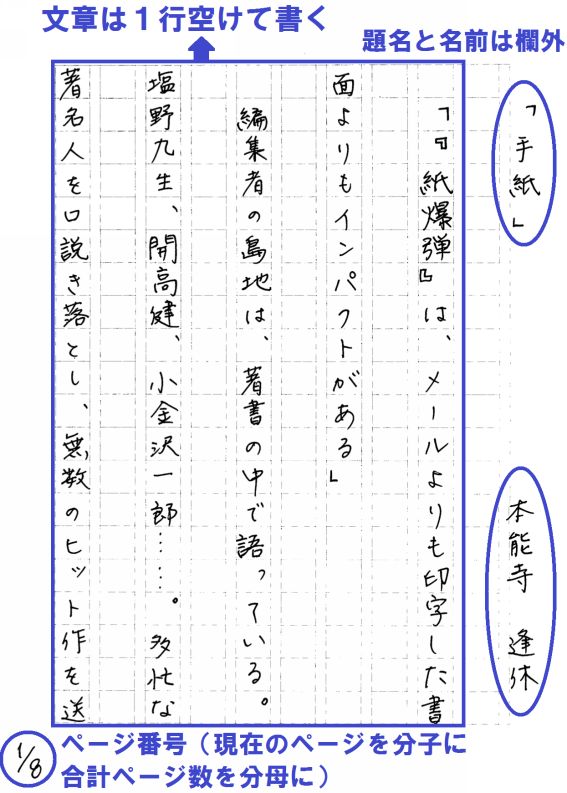 文章は1行空けて書く
題名と名前は欄外
「手紙」
本能寺　逢休
「『紙爆弾』は、メールよりも印字した書
面よりもインパクトがある」
編集者の島地は、著書の中で語っている。
塩野九生、開高健、小金沢一郎……。多忙な
著名人を口説き落とし、無数のヒット作を送
1/8
ページ番号（現在のページを分子に
合計ページ数を分母に）